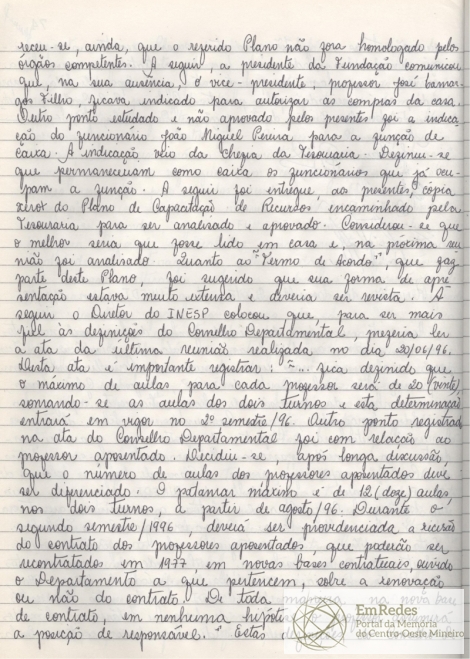 receu-se, ainda, que o referido Plano não fora homologado pelos
órgãos competentes. A seguir, a presidente da Fundação comunicou
que, na sua ausência, o vice-presidente, professor José Camar-
gos Filho, ficava indicado para autorizar as compras da casa.
Outro ponto estudado e não aprovado pelos presentes foi a indica-
ção do funcionário João Miguel Pereira para a função de
caixa. A indicação veio da Chefia da Tesouraria. Definiu-se
que permaneceriam como caixa os funcionários que já ocu-
pam a função. A seguir foi entregue, aos presentes, cópia
xerox do Plano de Capacitação de Recursos encaminhado pela
Tesouraria para ser analisado e aprovado. Considerou-se que
o melhor seria que fosse lido em casa e, na próxima reu
não foi analisado. Quanto ao "Termo de Acordo", que faz
parte deste Plano, foi sugerido que sua forma de apre
sentação estava muito extensa e deveria ser revista. A
seguir o Diretor do INESP colocou que, para ser mais
fiel às definições do Conselho Departamental, preferia ler
a ata da última reunião realizada no dia 20/06/96.
Desta ata é importante registrar: "... fica definido que
o máximo de aulas, para cada professor será de 20 (vinte)
somando-se as aulas dos dois turnos e esta determinação
entrará em vigor no 2º semestre/96. Outro ponto registrado
na ata do Conselho Departamental foi com relação ao
professor aposentado. Decidiu-se, após longa discussão,
que o número de aulas dos professores aposentados deve
ser diferenciado. O patamar máximo é de 12 (doze) aulas,
nos dois turnos, a partir de agosto/96. Durante o
segundo semestre/1996, deverá ser providenciada a rescisão
do contrato dos professores aposentados, que poderão ser
recontratados em 1977 em novas bases contratuais, ouvido
o Departamento a que pertencem, sobre a renovação
ou não do contrato. De toda maneira, na nova
de contrato, em nenhuma hipótese
a posição de responsável." Estas
EmRedes
Portal da Memória
de Centro-Oeste Mineiro